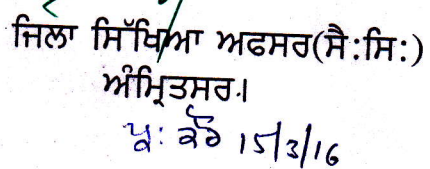 ਜਿਲਾ ਸਿੱਖਿਆ ਅਫਸਰ(ਸੈ:ਸਿ:)
ਅੰਮ੍ਰਿਤਸਰ।
15/3/16